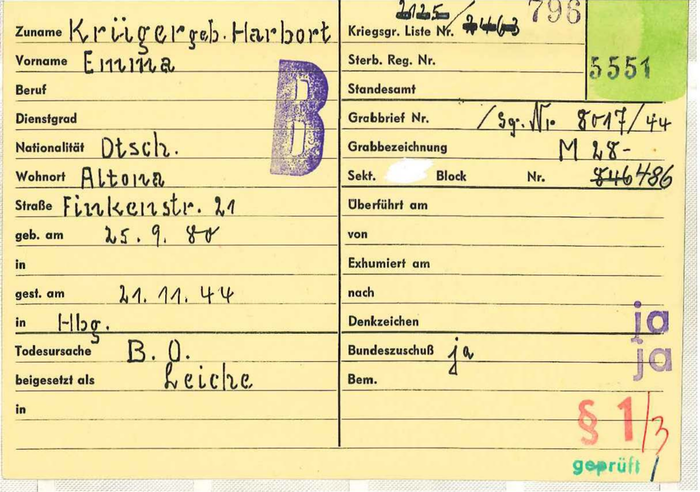 Zuname Krüger geb. Harbort
Vorname Emma
Beruf
Dienstgrad
Nationalität Dtsch.
Wohnort Altona
Straße Finkenstr. 21
geb. am 25. 9. 80
in
gest. am 21. 11. 44
in Hbg.
Todesursache B. O.
beigesetzt als Leiche
in
B
2125/
Kriegsgr. Liste Nr. 2463 796
Sterb. Reg. Nr. 5551
Standesamt
Grabbrief Nr. /Sg. Nr. 8017/44
Grabbezeichnung M 28-
Sekt. Block Nr. 846 486
Überführt am
von
Exhumiert am
nach
Denkzeichen ja
Bundeszuschuß ja ja
Bem.
§ 1/3
geprüft